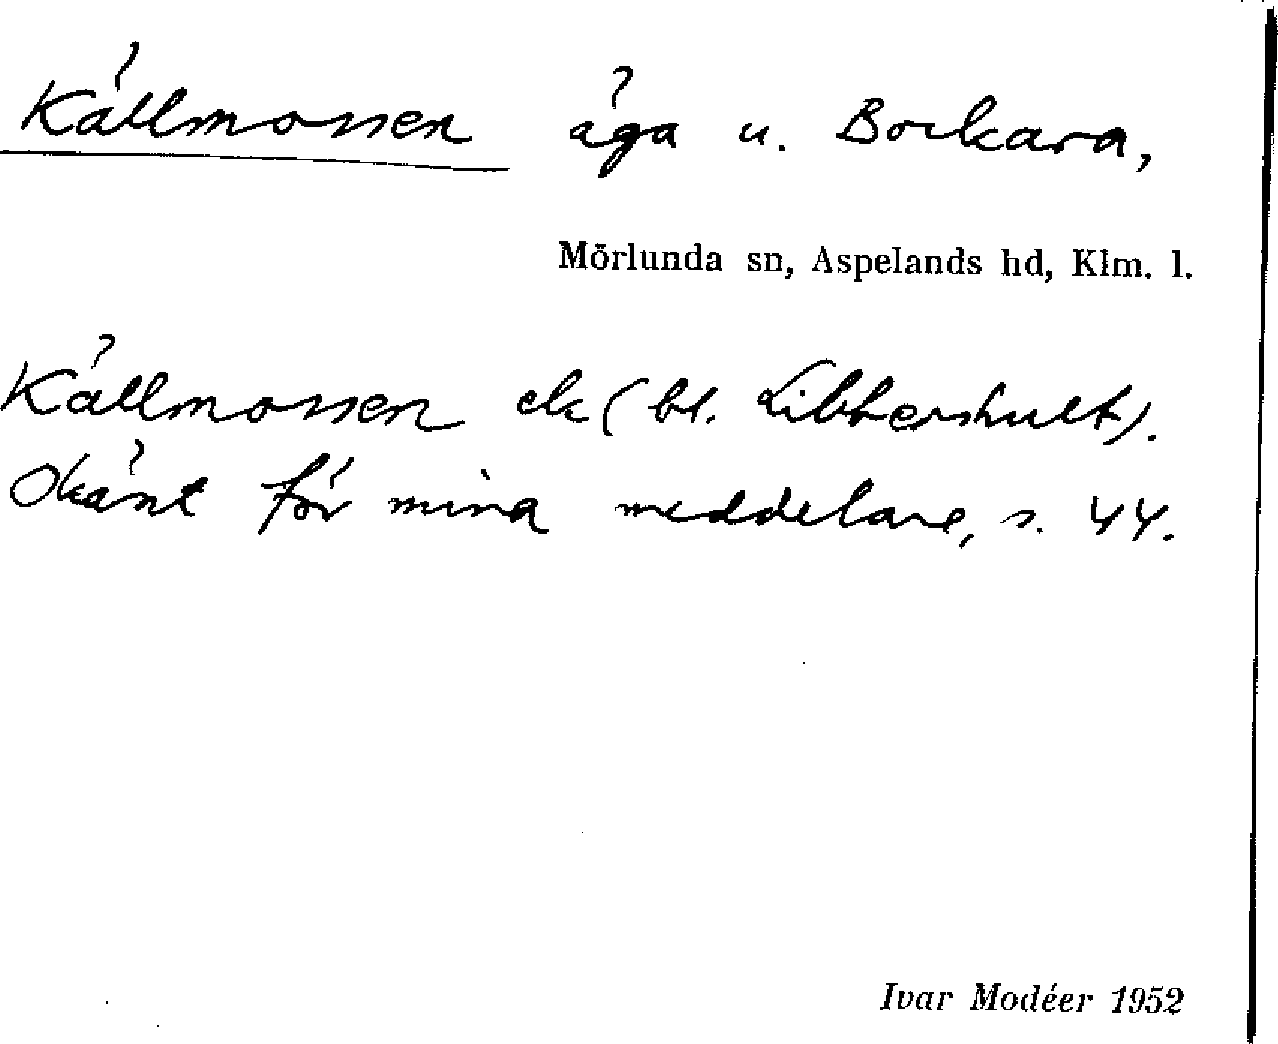 Källmossen äga u. Bockara,
Mörlunda sn, Aspelands hd, Klm. l.
Källmossen ek (bl. Libbershult).
Okänt för mina meddelare, s. 44.
Ivar Modéer 1952